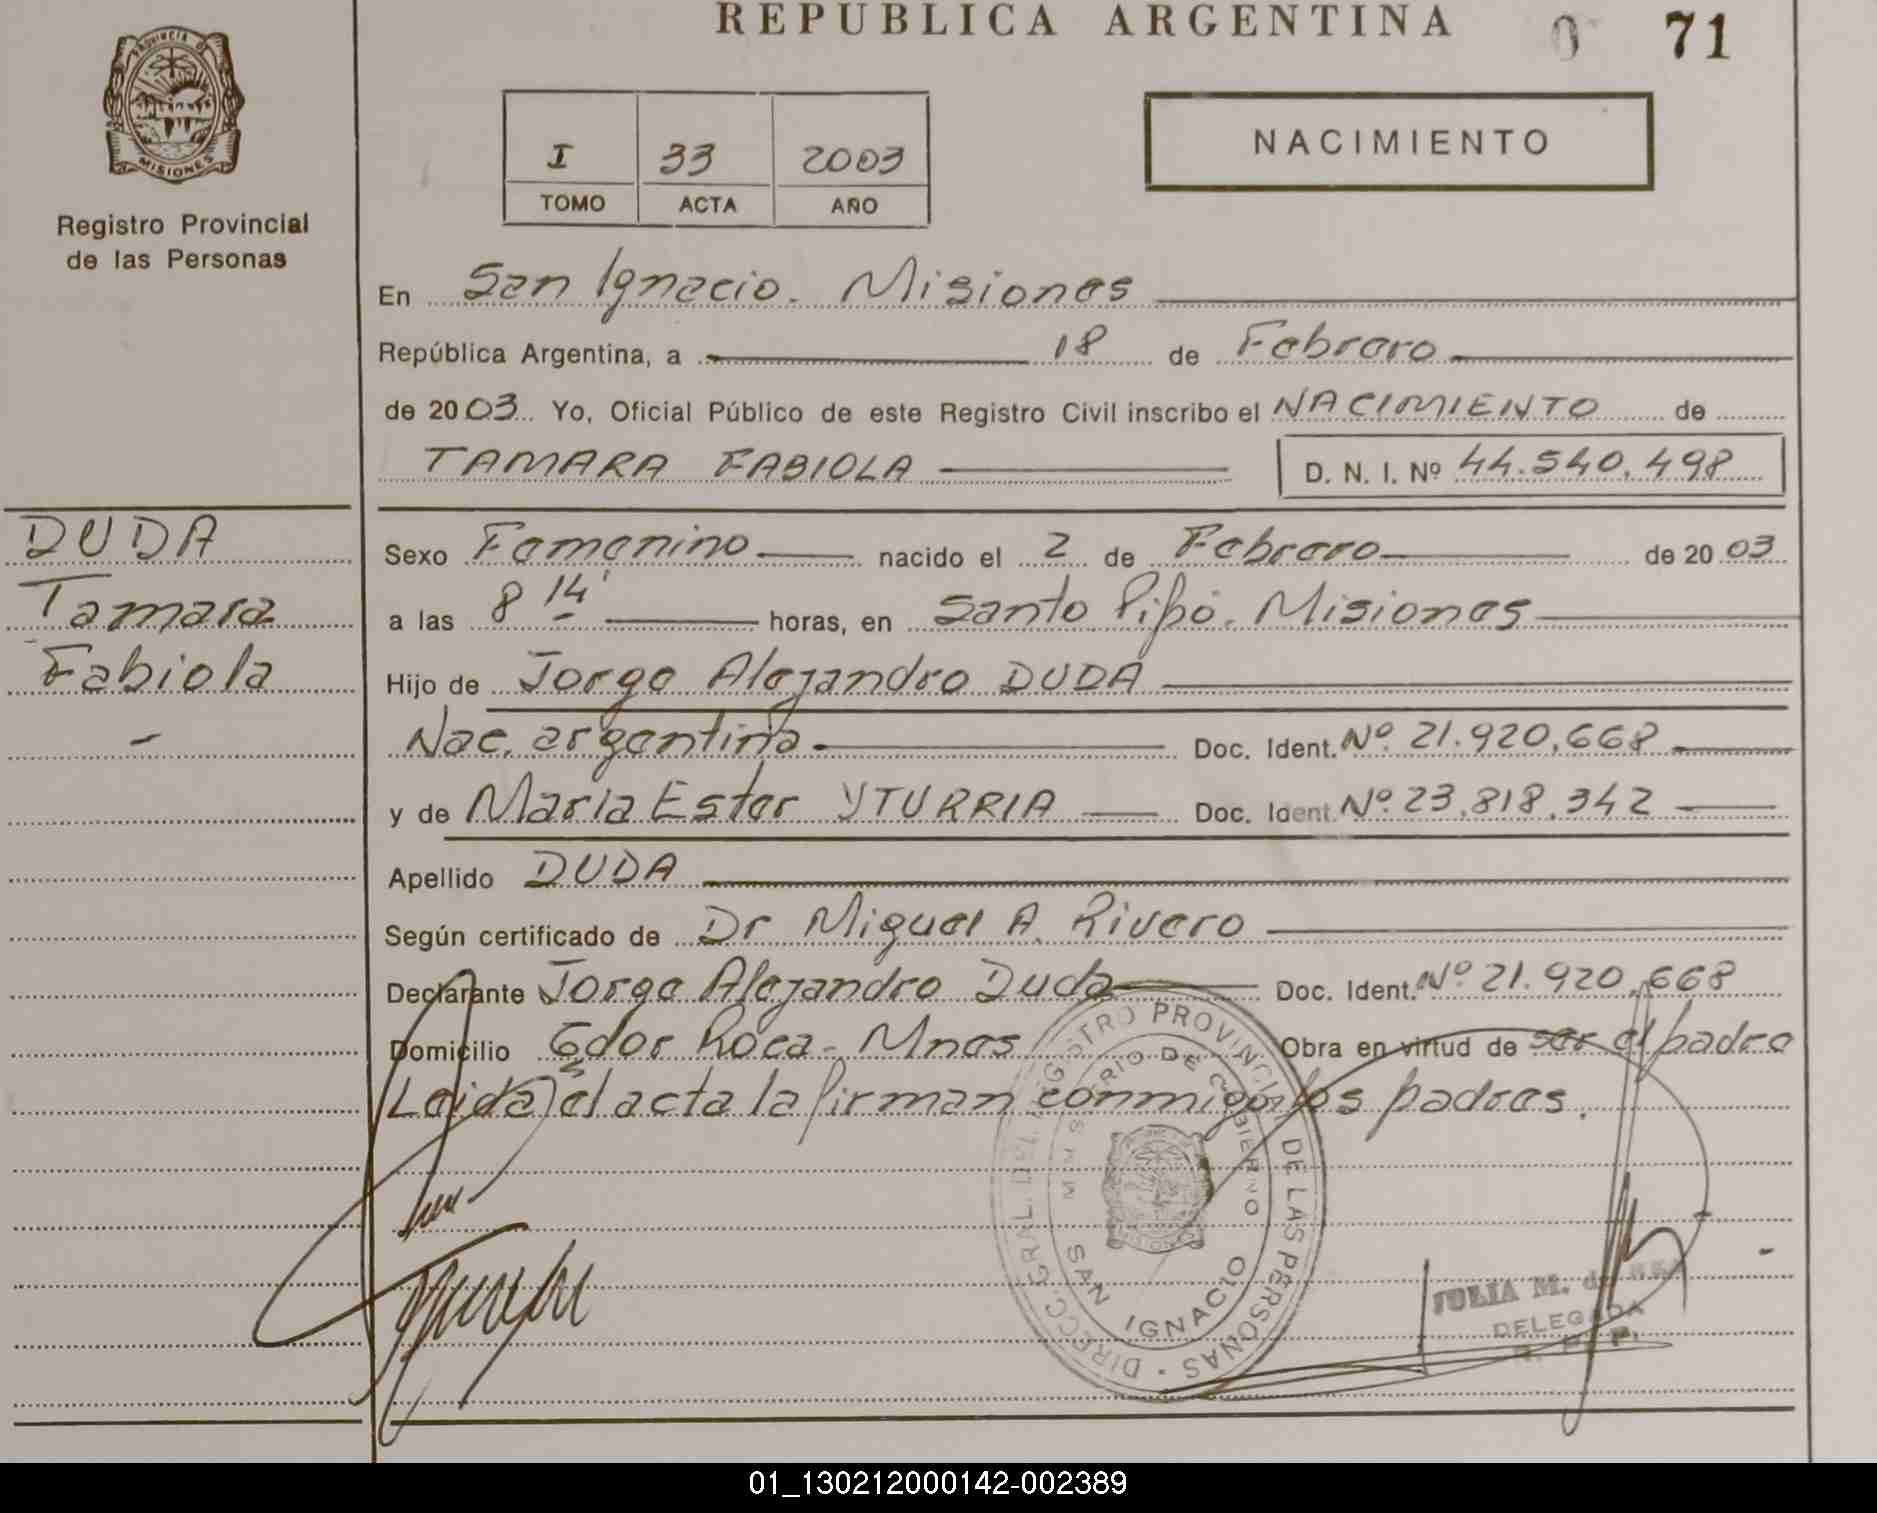 REPUBLICA ARGENTINA
0 71
PROVINCIA DE
MISIONES
Registro Provincial
de las Personas
I 33 2003
TOMO ACTA AÑO
NACIMIENTO
En San Ignacio. Misiones
República Argentina, a 18 de Febrero
de 2003 Yo, Oficial Público de este Registro Civil inscribo el NACIMIENTO de
TAMARA FABIOLA D. N. I. Nº 44.540.498
DUDA
Tamara
Fabiola
Sexo Femenino nacido el 2 de Febrero de 2003
a las 8 14' horas, en Santo Pipó. Misiones
Hijo de Jorge Alejandro DUDA
Nac. argentina Doc. Ident. Nº 21.920.668
y de María Ester YTURRIA Doc. Ident. Nº 23.818.342
Apellido DUDA
Según certificado de Dr Miguel A. Rivero
Declarante Jorge Alejandro Duda Doc. Ident. Nº 21.920.668
Domicilio Gdor Roca - Mnes Obra en virtud de ser el padre
Leida el acta la firman conmigo los padres.
DIRECC. GRAL. DEL REGISTRO PROVINCIAL DE LAS PERSONAS
MINISTERIO DE GOBIERNO
SAN IGNACIO
JULIA M. de
DELEGADA
R. P. P.
01_130212000142-002389